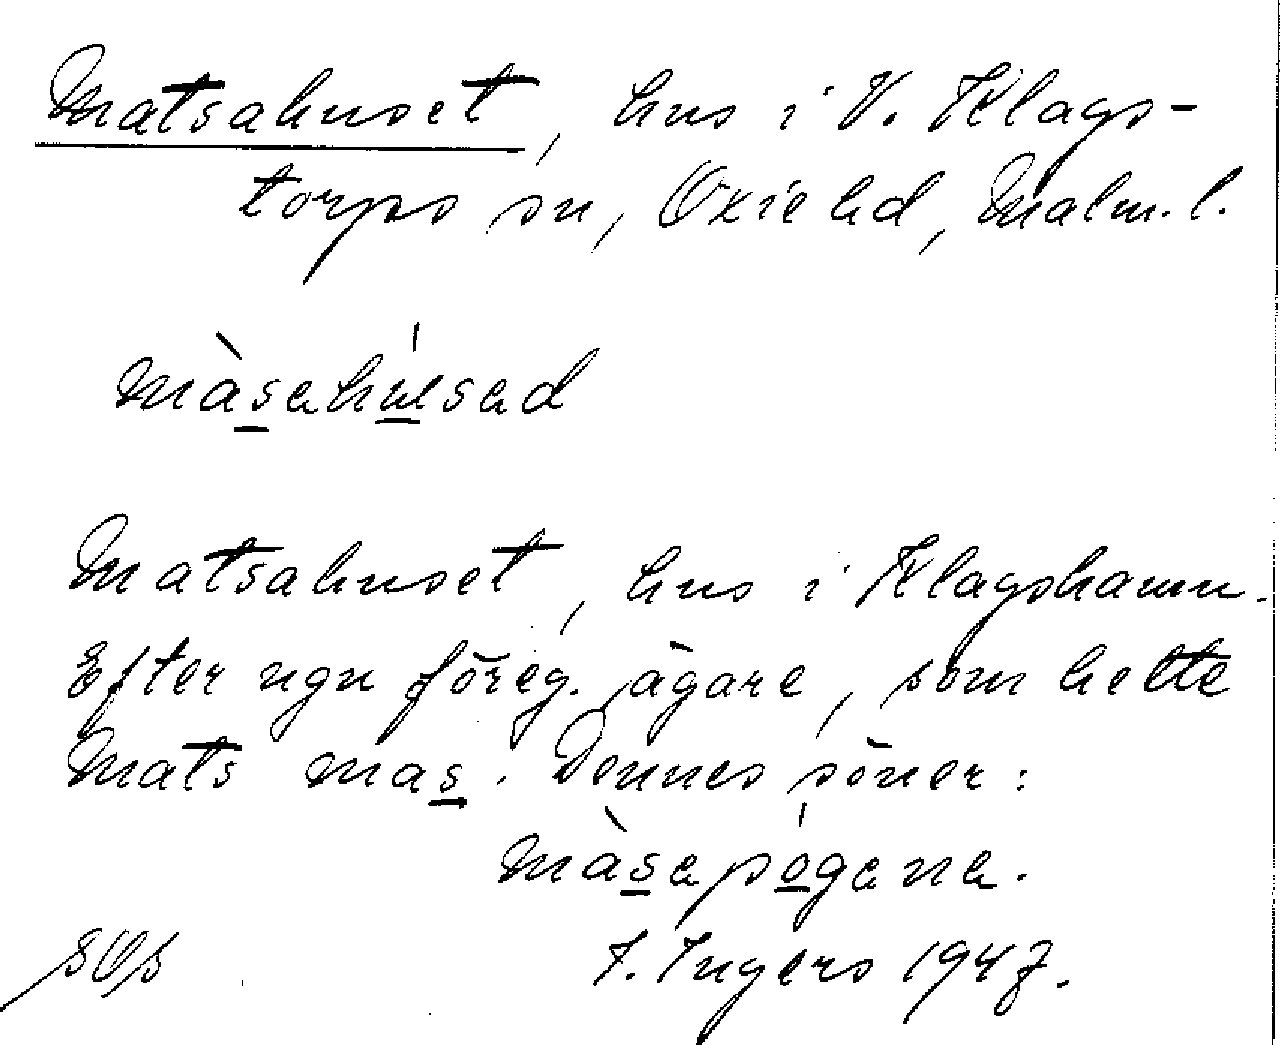 Matsahuset, hus i V. Klags-
torps sn, Oxie hd, Malm. l.
Màsahúsad
Matsahuset, hus i Klagshamn.
Efter ngn föreg. ägare, som hette
Mats mas. Dennes söner:
Màsapógana.
I. Ingers 1947.